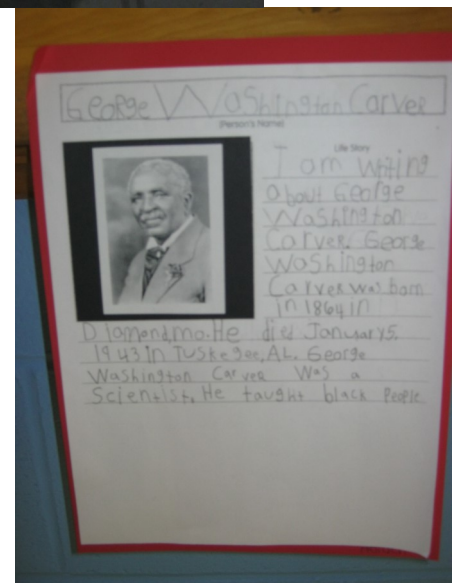 George Washington Carver
(Person's Name)
Life Story
I am writing
about George
Washington
Carver. George
Washington
Carver was born
in 1864 in
Diamond, mo. He died January 5,
1943 in Tuskegee, AL. George
Washington Carver Was a
Scientist. He taught black People